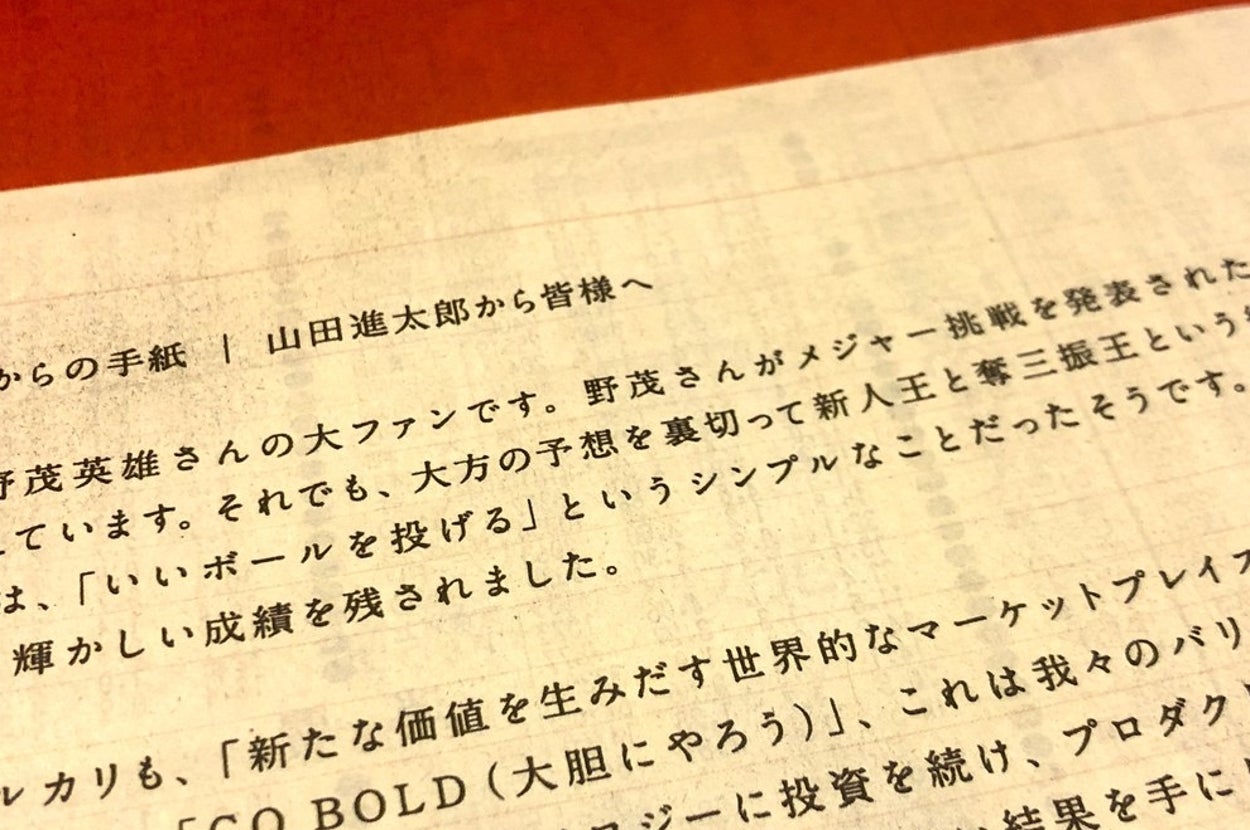 からの手紙 | 山田進太郎から皆様へ
野茂英雄さんの大ファンです。野茂さんがメジャー挑戦を発表された
ています。それでも、大方の予想を裏切って新人王と奪三振王という
は、「いいボールを投げる」というシンプルなことだったそうです。
輝かしい成績を残されました。
ルカリも、「新たな価値を生みだす世界的なマーケットプレイス
「GO BOLD(大胆にやろう)」、これは我々のバリ
ロジーに投資を続け、プロダク
結果を手に